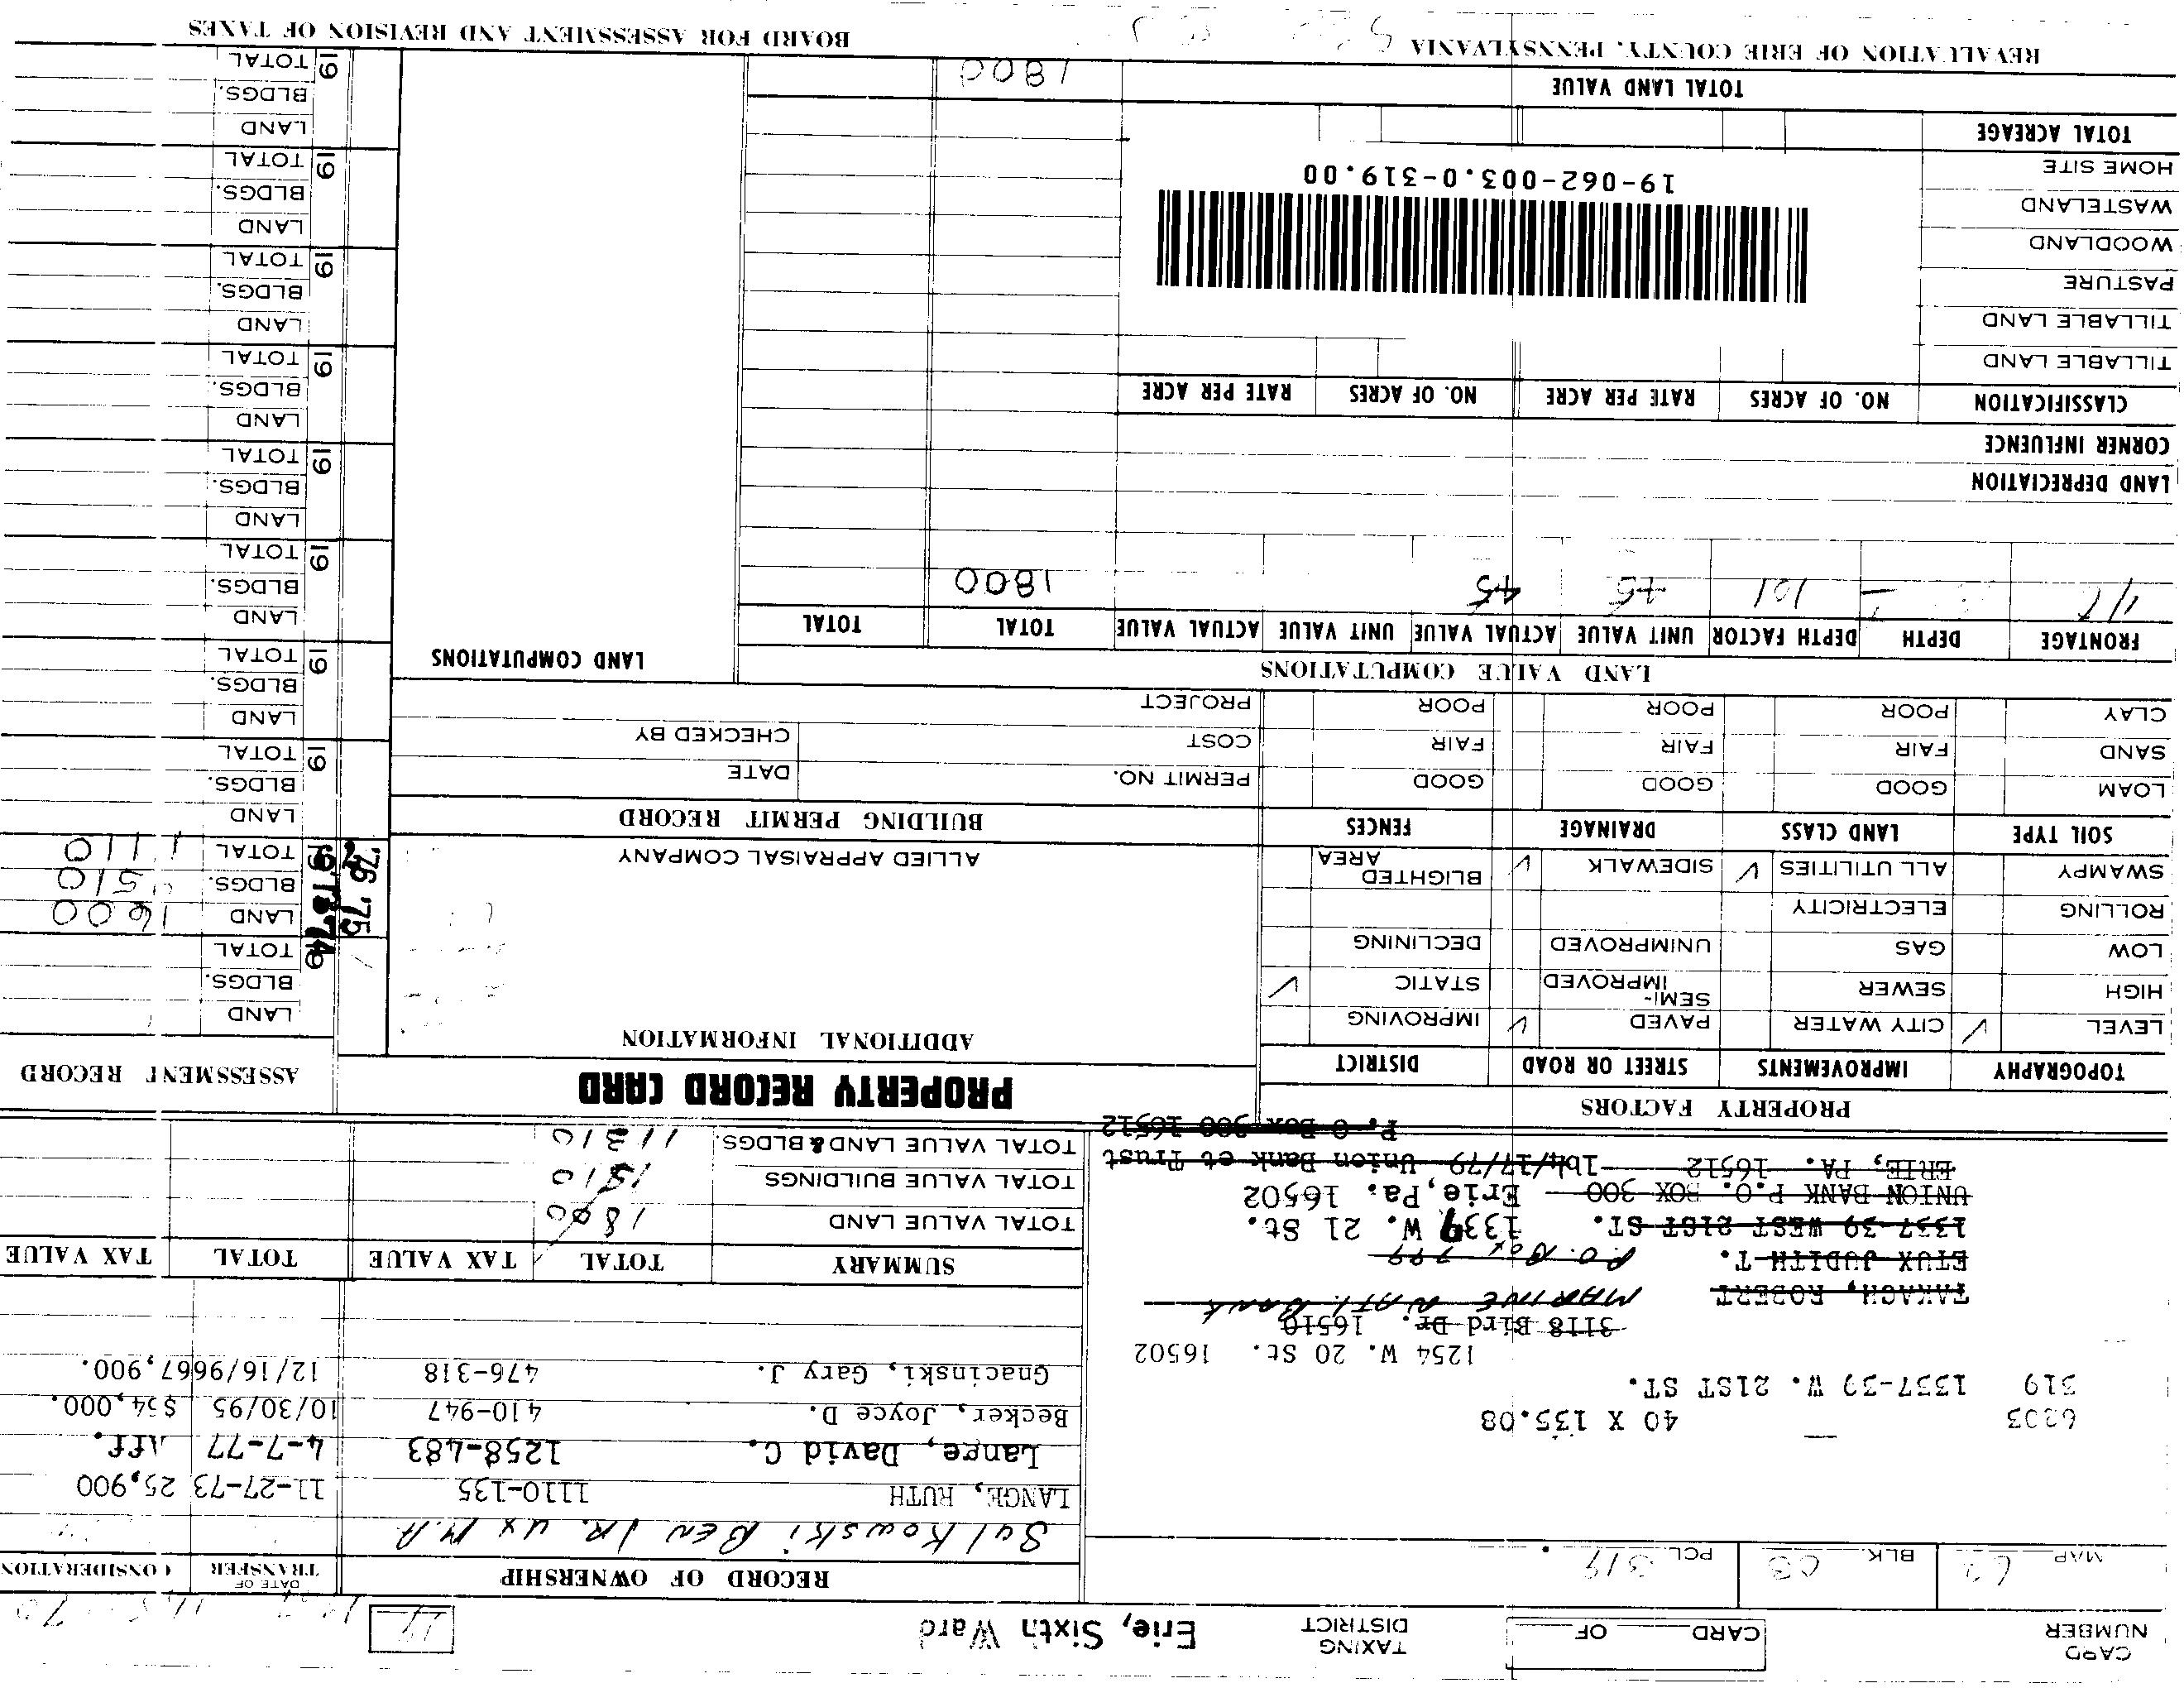 CARD NUMBER
CARD OF
TAXING DISTRICT
Erie, Sixth Ward
19
MAP 62 BLK. 03 PCL. 319
RECORD OF OWNERSHIP
DATE OF TRANSFER
CONSIDERATION
Sulkowski Ben JR. ux M.A
LANGE, RUTH 1110-135 11-27-73 25,900
Lange, David C. 1258-483 4-7-77 Aff.
Becker, Joyce D. 410-947 10/30/95 $54,000.
Gnacinski, Gary J. 476-318 12/16/9667,900.
6203 40 X 135.08
319 1337-39 W. 21ST ST.
1254 W. 20 St. 16502
3118 Bird Dr. 16510
TAKACH, ROBERT MARINE NATL BANK
ETUX JUDITH T. P.O. Box 799
1337-39 WEST 21ST ST. 1339 W. 21 St.
UNION BANK P.O. BOX 300 Erie, Pa. 16502
ERIE, PA. 16512 1b4/17/79 Union Bank et Trust
P. O Box 300 16512
SUMMARY TOTAL TAX VALUE TOTAL TAX VALUE
TOTAL VALUE LAND 1800
TOTAL VALUE BUILDINGS
TOTAL VALUE LAND & BLDGS. 11310
PROPERTY FACTORS
PROPERTY RECORD CARD
ASSESSMENT RECORD
TOPOGRAPHY IMPROVEMENTS STREET OR ROAD DISTRICT
LEVEL ✓ CITY WATER PAVED ✓ IMPROVING
HIGH SEWER SEMI-IMPROVED STATIC ✓
LOW GAS UNIMPROVED DECLINING
ROLLING ELECTRICITY
SWAMPY ALL UTILITIES ✓ SIDEWALK ✓ BLIGHTED AREA
SOIL TYPE LAND CLASS DRAINAGE FENCES
LOAM GOOD GOOD GOOD
SAND FAIR FAIR FAIR
CLAY POOR POOR POOR
ADDITIONAL INFORMATION
ALLIED APPRAISAL COMPANY
BUILDING PERMIT RECORD
PERMIT NO. DATE
COST CHECKED BY
PROJECT
LAND VALUE COMPUTATIONS
LAND COMPUTATIONS
FRONTAGE DEPTH DEPTH FACTOR UNIT VALUE ACTUAL VALUE UNIT VALUE ACTUAL VALUE TOTAL TOTAL
101 45 45 1800
LAND DEPRECIATION
CORNER INFLUENCE
CLASSIFICATION NO. OF ACRES RATE PER ACRE NO. OF ACRES RATE PER ACRE
TILLABLE LAND
TILLABLE LAND
PASTURE
WOODLAND
WASTELAND
HOME SITE
19-062-003.0-319.00
TOTAL ACREAGE
TOTAL LAND VALUE 1800
LAND
BLDGS.
TOTAL
19
'76 '75
LAND 1600
BLDGS. 9510
TOTAL 11110
LAND
BLDGS.
19 TOTAL
LAND
BLDGS.
19 TOTAL
LAND
BLDGS.
19 TOTAL
LAND
BLDGS.
19 TOTAL
LAND
BLDGS.
19 TOTAL
LAND
BLDGS.
19 TOTAL
LAND
BLDGS.
19 TOTAL
LAND
BLDGS.
19 TOTAL
REVALUATION OF ERIE COUNTY, PENNSYLVANIA
BOARD FOR ASSESSMENT AND REVISION OF TAXES